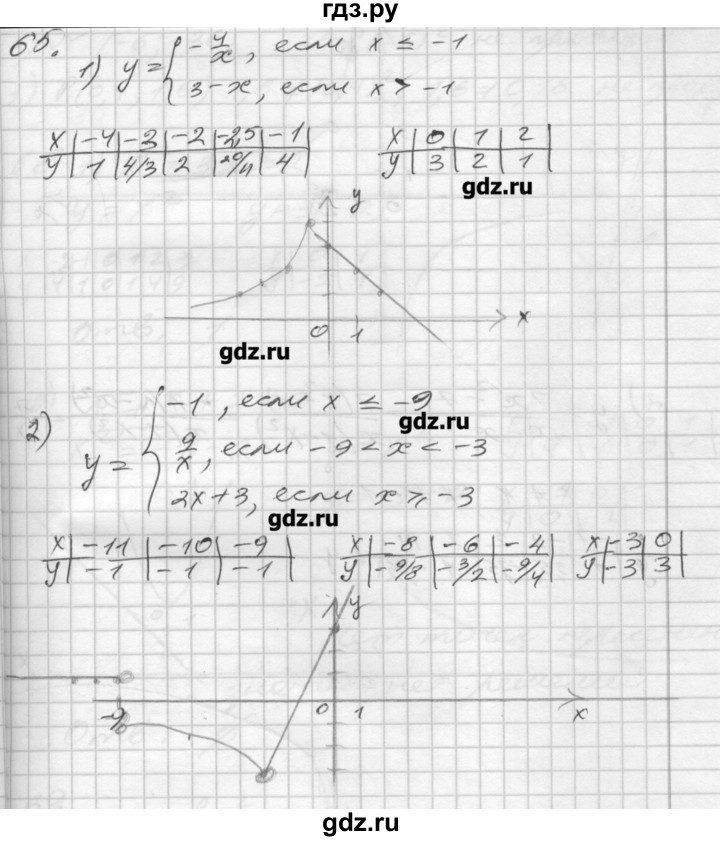 гдз.ру
65.
1) y = { -4/x, если x ≤ -1
3-x, если x > -1
x | -4 | -3 | -2 | -2,5 | -1 |
y | 1 | 4/3 | 2 | 20/11 | 4 |
x | 0 | 1 | 2 |
y | 3 | 2 | 1 |
gdz.ru
y
0 1 x
gdz.ru
2) y = { -1, если x ≤ -9
gdz.ru
9/x, если -9 < x < -3
2x+3, если x ≥ -3
gdz.ru
x | -11 | -10 | -9 |
y | -1 | -1 | -1 |
x | -8 | -6 | -4 |
y | -9/8 | -3/2 | -9/4 |
x | -3 | 0 |
y | -3 | 3 |
y
-9 0 1 x
gdz.ru